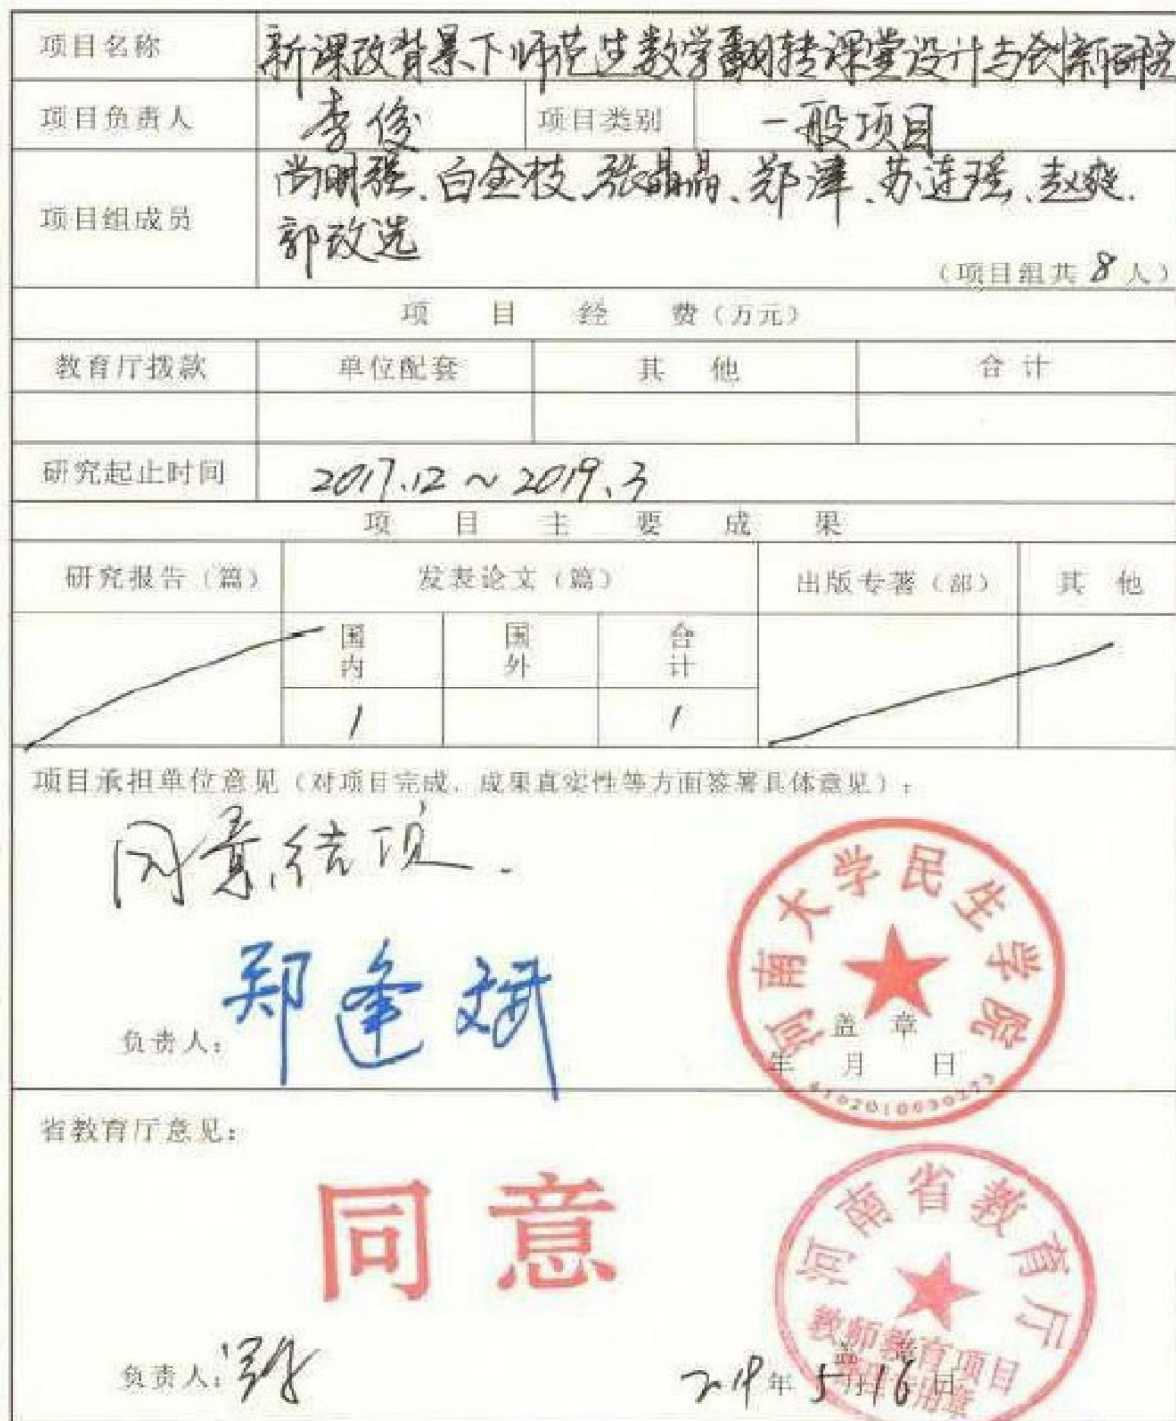 项目名称 新课改背景下师范生数学翻转课堂设计与创新研究
项目负责人 李俊 项目类别 一般项目
项目组成员 尚朋强、白金枝、张晶晶、郑津、苏连瑶、赵爽.
郭改选
(项目组共 8 人)
项目经费(万元)
教育厅拨款 单位配套 其他 合计
研究起止时间 2017.12~2019.3
项目主要成果
研究报告(篇) 发表论文(篇) 出版专著(部) 其他
国内 国外 合计
1 1
项目承担单位意见(对项目完成、成果真实性等方面签署具体意见):
同意结项.
负责人: 郑逢斌
河南大学民生学院
盖章
年 月 日
省教育厅意见:
同意
河南省教育厅
教师教育项目
负责人:
2019年5月16日